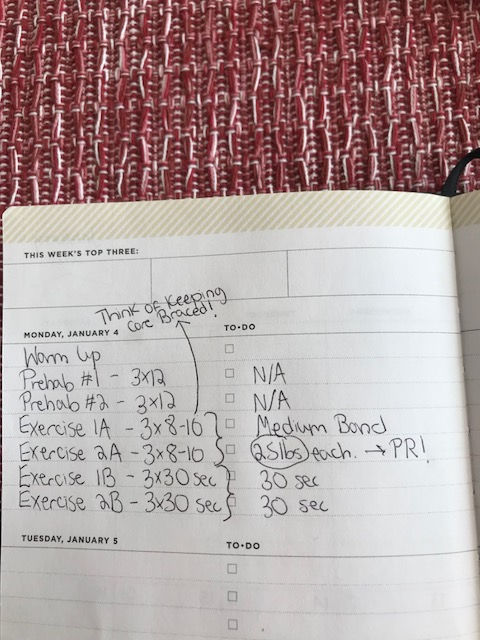 THIS WEEK'S TOP THREE:
Think of Keeping
Core Braced!
MONDAY, JANUARY 4 TO·DO
Warm Up
Prehab #1 - 3x12 N/A
Prehab #2 - 3x12 N/A
Exercise 1A - 3x8-10 Medium Band
Exercise 2A - 3x8-10 25lbs each. → PR!
Exercise 1B - 3x30 sec 30 sec
Exercise 2B - 3x30 sec 30 sec
TUESDAY, JANUARY 5 TO·DO